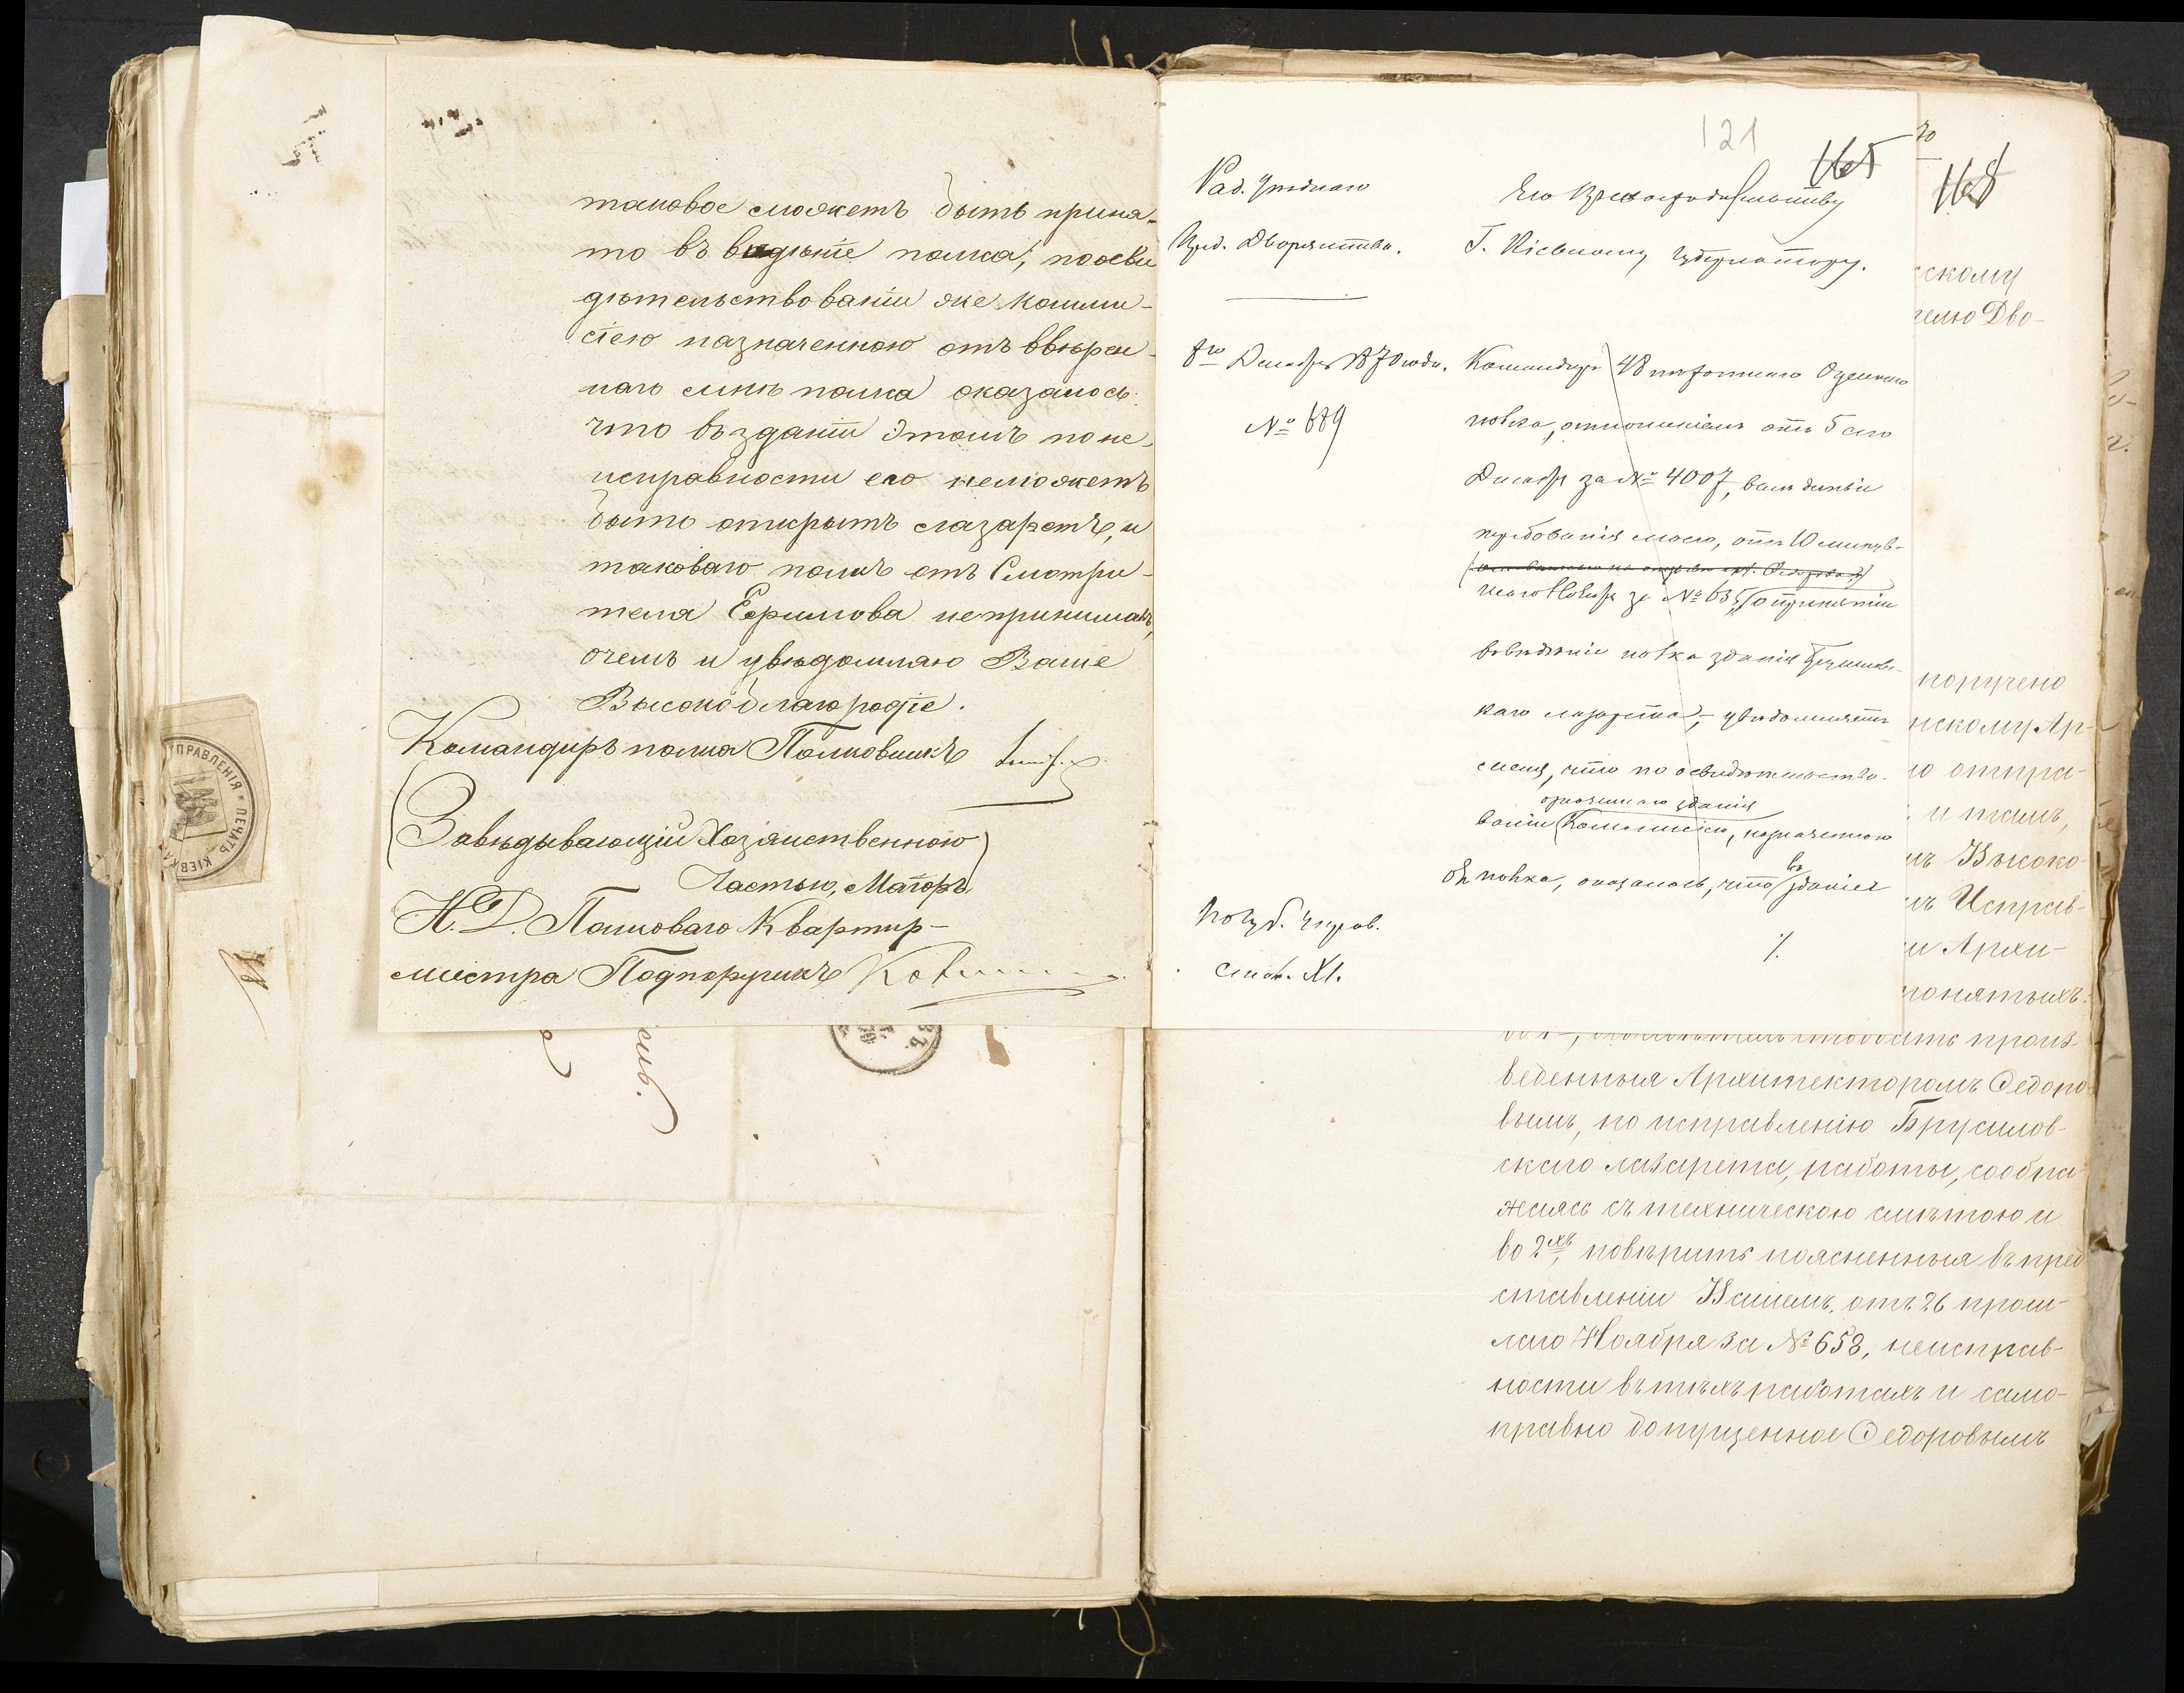 таковое можетъ быть приня-
то въ вѣденіе полка, по осви
дѣтельствованіи же комми-
сіею назначенною отъ ввѣрен-
наго мнѣ полка оказалось:
что въ зданіи этомъ по не-
исправности его неможетъ
быть открытъ лазаретъ, и
таковаго полкъ отъ Смотри-
теля Ефимова непринималъ,
очемъ и увѣдомляю Ваше
Высокоблагородіе.
Командиръ полка Полковникъ
Завѣдывающій Хозяйственною
Частью, Маіоръ
И. Д. Полковаго Квартир-
мистра Подпоручикъ
УПРАВЛЕНІЯ * ПЕЧАТЬ КІЕВКА
121
165
Рад. Уѣзднаго
Пред. Дворянства.
8го Декабря 1870 года.
№ 689
Его Превосходительству
Г. Кіевскому Губернатору.
Командиръ 48 пѣхотнаго Одесскаго
полка, отношеніемъ отъ 5 сего
Декабря за № 4007, вслѣдствіе
требованія моего, отъ 10 минув-
шаго Ноября за № 635, о принятіи
въ вѣдѣніе полка зданія Брусиловс-
каго лазарета, – увѣдомляетъ
меня, что по освидѣтельство-
означеннаго зданія
ваніи Коммисіею, назначенною
отъ полка, оказалось, что въ зданіе
./.
По губ. Управ.
Стол. XI.
70
168
скому
телю Дво-
поручено
нскому Ар-
ю отпра-
и тамъ,
мъ Высоко-
мъ Исправ-
и Архи-
понятыхъ:
произ-
веденныя Архитекторомъ Федоро-
вымъ, по исправленію Брусилов-
скаго лазарета, работы, сообра
жаясь съ техническою смѣтою и
во 2хъ, повѣрить поясненныя въ пред
ставленіи Вашемъ, отъ 26 прош-
лаго Ноября за № 658, неисправ-
ности въ тѣхъ работахъ и само-
правно допущенное Федоровымъ